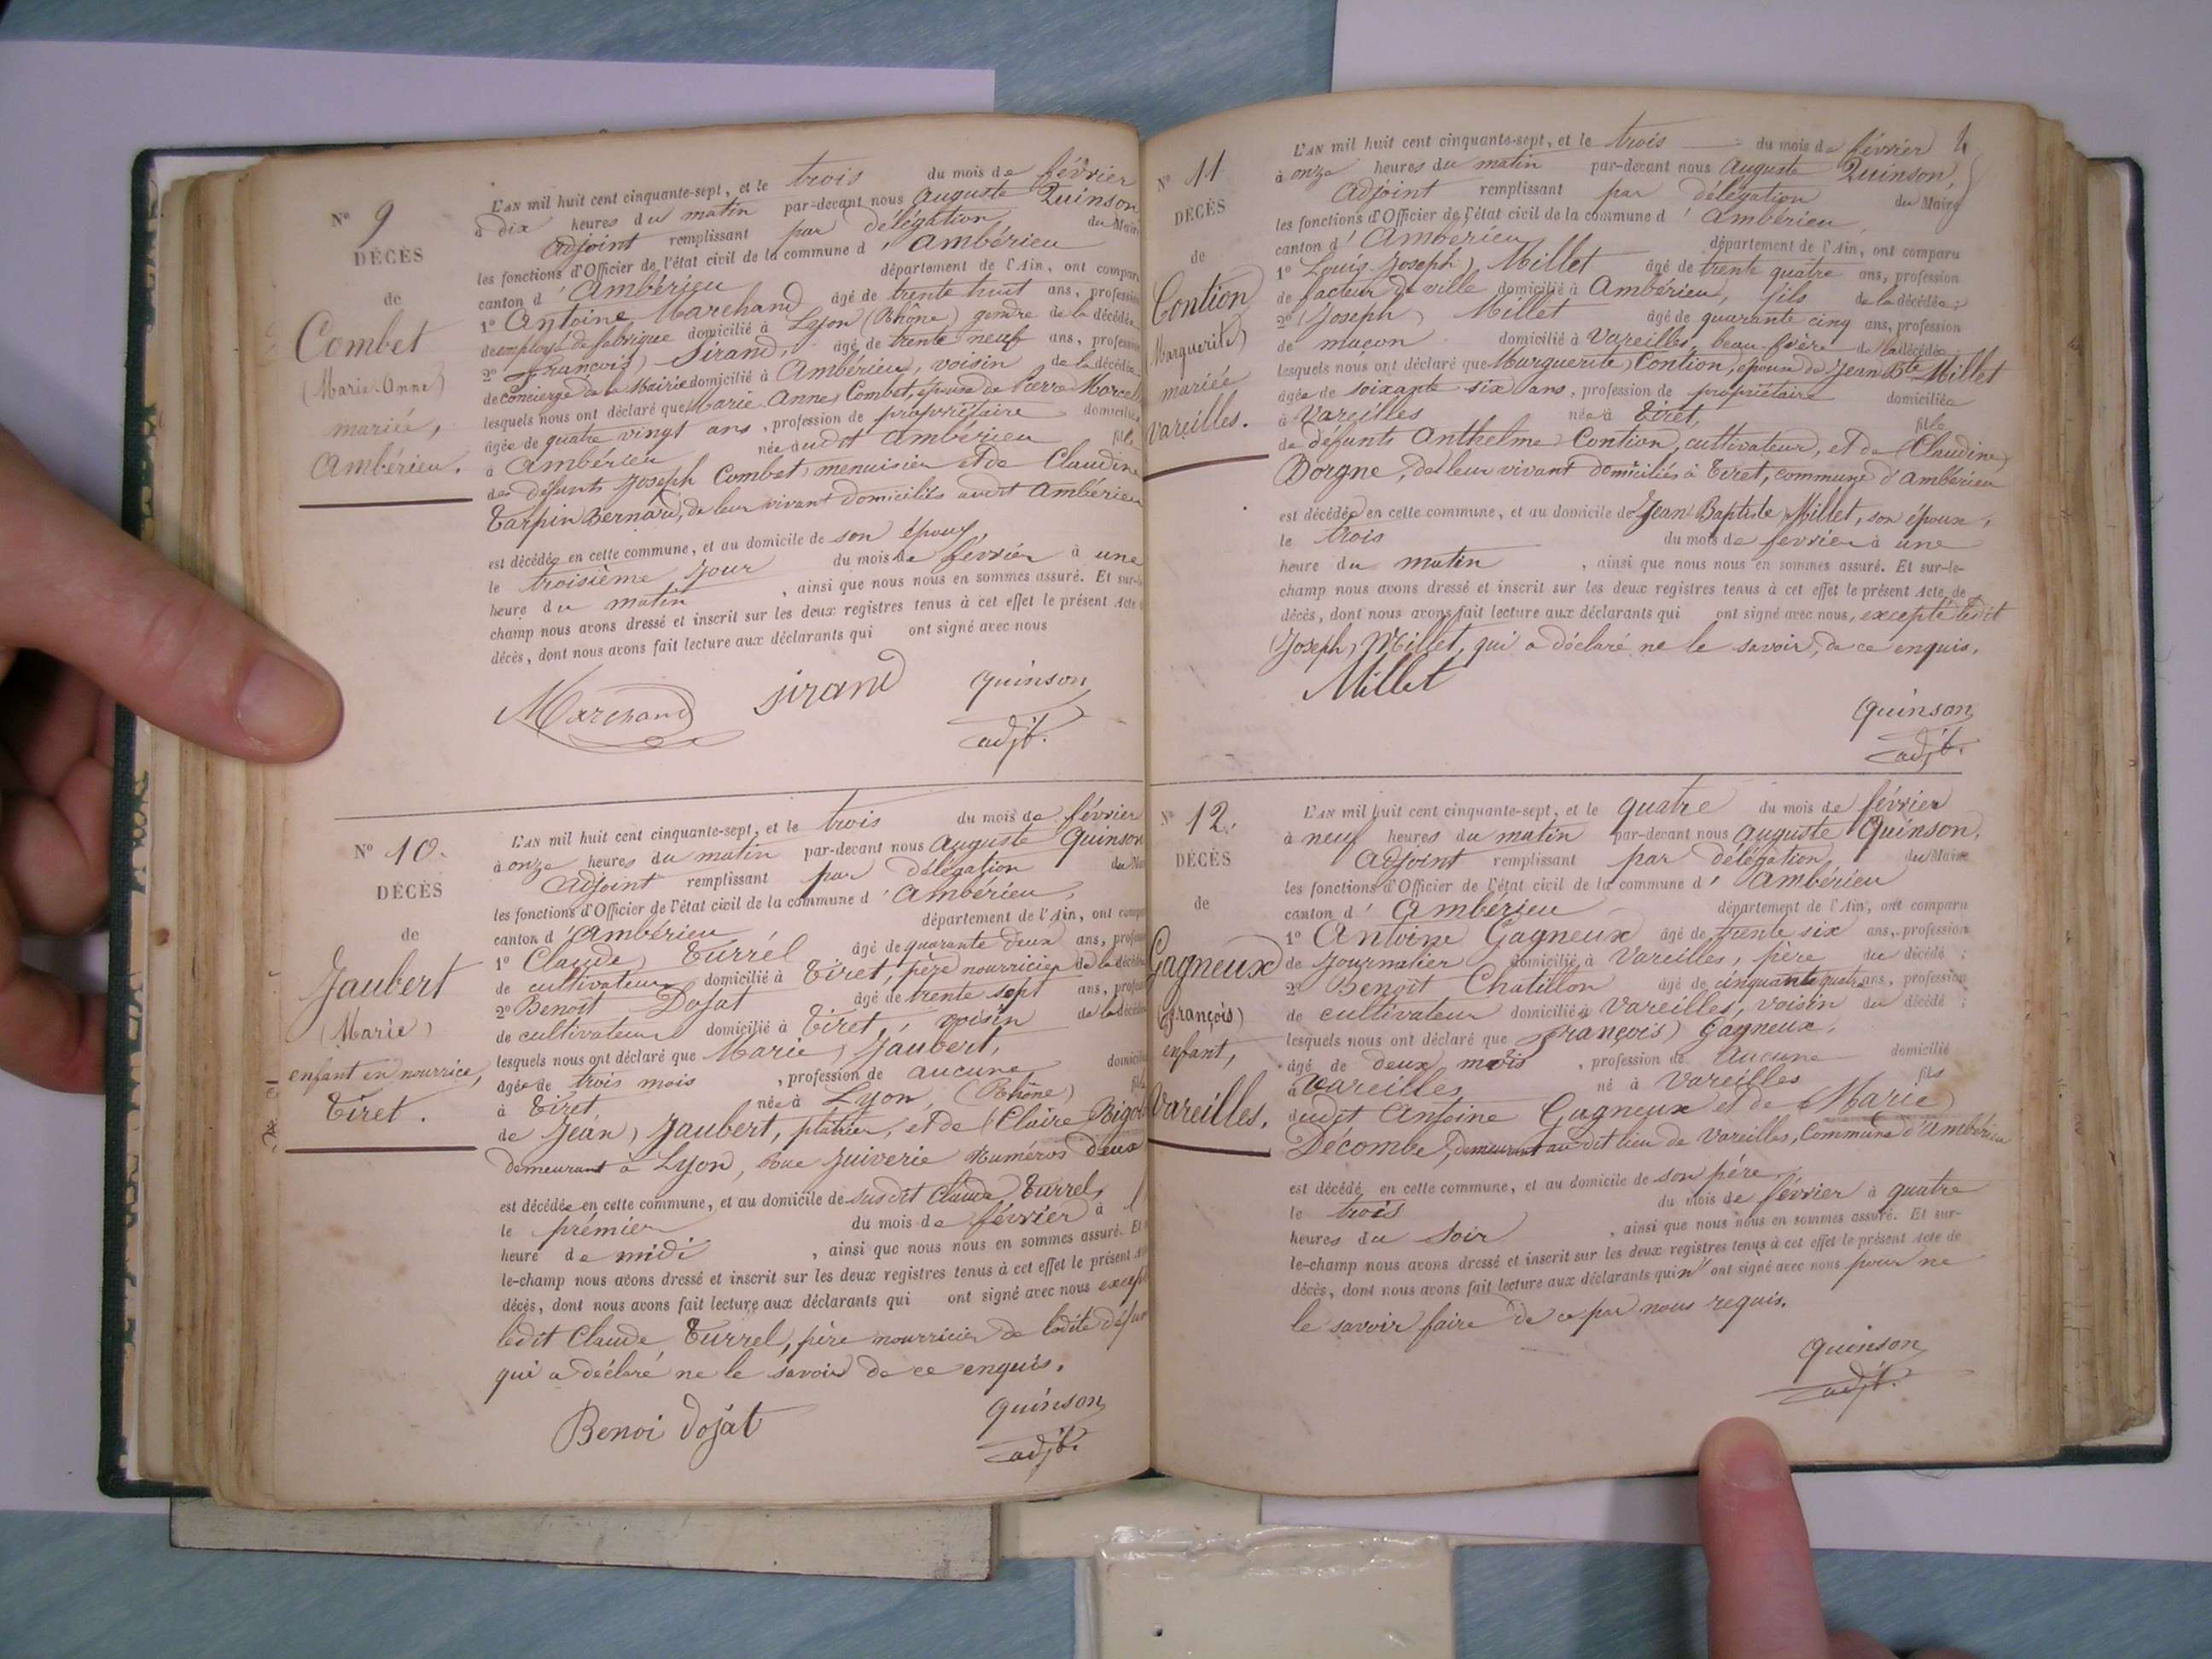 Nº 9
DÉCÈS
de
Combet
(Marie-Anne)
mariée,
Ambérieu.
L'AN mil huit cent cinquante-sept, et le trois du mois de février
à dix heures du matin par-devant nous Auguste Quinson
Adjoint remplissant par délégation du Maire
les fonctions d'Officier de l'état civil de la commune d'Ambérieu
canton d'Ambérieu département de l'Ain, ont comparu
1º Antoine Marchand âgé de trente huit ans, profession
de employé de fabrique domicilié à Lyon (Rhône) gendre de la décédée
2º (François) Sirand, âgé de trente neuf ans, profession
de concierge de la Mairie domicilié à Ambérieu, voisin de la décédée
lesquels nous ont déclaré que Marie-Anne Combet, épouse de Pierre Marcel
âgée de quatre vingt ans, profession de propriétaire domiciliée
à Ambérieu née audit Ambérieu fille
des défunts Joseph Combet, menuisier et de Claudine
Tarpin Bernard, de leur vivant domiciliés audit Ambérieu
est décédée en cette commune, et au domicile de son époux
le troisième jour du mois de février à une
heure du matin, ainsi que nous nous en sommes assuré. Et sur-le-
champ nous avons dressé et inscrit sur les deux registres tenus à cet effet le présent Acte de
décès, dont nous avons fait lecture aux déclarants qui ont signé avec nous
Marchand Sirand Quinson
adjt.
Nº 10.
DÉCÈS
de
Jaubert
(Marie)
enfant en nourrice,
Tiret.
L'AN mil huit cent cinquante-sept, et le trois du mois de février
à onze heures du matin par-devant nous Auguste Quinson
Adjoint remplissant par délégation du Mai
les fonctions d'Officier de l'état civil de la commune d'Ambérieu,
canton d'Ambérieu département de l'Ain, ont compar
1º Claude) Turrel âgé de quarante deux ans, profess
de cultivateur domicilié à Tiret, père nourricier de la décédée
2º Benoit Dojat âgé de trente sept ans, profess
de cultivateur domicilié à Tiret, voisin de la décédée
lesquels nous ont déclaré que Marie) Jaubert,
âgée de trois mois, profession de aucune domicilié
à Tiret, née à Lyon, (Rhône) fille
de Jean) Jaubert, plâtrier, et de (Claire Rigot
demeurant à Lyon, Rue Juiverie Numéros deux
est décédée en cette commune, et au domicile de susdit Claude Turrel,
le prémier du mois de février à l
heure de midi, ainsi que nous nous en sommes assuré. Et
le-champ nous avons dressé et inscrit sur les deux registres tenus à cet effet le présent A
décès, dont nous avons fait lecture aux déclarants qui ont signé avec nous except
ledit Claude Turrel, père nourricier de ladite défun
qui a déclaré ne le savoir de ce enquis.
Benoi Dojat Quinson
adjt.
Nº 11
DÉCÈS
de
Contion
(Marguerite)
mariée
Vareilles.
L'AN mil huit cent cinquante-sept, et le trois du mois de février
à onze heures du matin par-devant nous Auguste Quinson,
Adjoint remplissant par délégation du Maire
les fonctions d'Officier de l'état civil de la commune d'Ambérieu,
canton d'Ambérieu département de l'Ain, ont comparu
1º Louis-Joseph) Millet âgé de trente quatre ans, profession
de facteur de ville domicilié à Ambérieu, fils de la décédée;
2º (Joseph) Millet âgé de quarante cinq ans, profession
de maçon domicilié à Vareilles, beau-frère de la décédée
lesquels nous ont déclaré que Marguerite) Contion, épouse de Jean Bte Millet
âgée de soixante six ans, profession de propriétaire domiciliée
à Vareilles née à Tiret, fille
de défunts Anthelme Contion, cultivateur, et de (Claudine)
Borgne, de leur vivant domiciliés à Tiret, commune d'Ambérieu
est décédée en cette commune, et au domicile de Jean Baptiste Millet, son époux,
le trois du mois de fevrier à une
heure du matin, ainsi que nous nous en sommes assuré. Et sur-le-
champ nous avons dressé et inscrit sur les deux registres tenus à cet effet le présent Acte de
décès, dont nous avons fait lecture aux déclarants qui ont signé avec nous, excepté ledit
(Joseph) Millet, qui a déclaré ne le savoir, de ce enquis.
Millet
Quinson
adjt.
Nº 12.
DÉCÈS
de
Gagneux
(François)
enfant,
Vareilles.
L'AN mil huit cent cinquante-sept, et le quatre du mois de février
à neuf heures du matin par-devant nous Auguste Quinson,
Adjoint remplissant par délégation, du Maire
les fonctions d'Officier de l'état civil de la commune d'Ambérieu
canton d'Ambérieu département de l'Ain, ont comparu
1º Antoine Gagneux âgé de trente six ans, profession
de journalier domicilié à Vareilles, père du décédé;
2º Benoît Chatillon âgé de cinquante quatre ans, profession
de cultivateur domicilié à Vareilles, voisin du décédé;
lesquels nous ont déclaré que François) Gagneux,
âgé de deux mois, profession de Aucune domicilié
à Vareilles né à Vareilles fils
dudit Antoine Gagneux et de (Marie)
Décombe, demeurant audit lieu de Vareilles, Commune d'Ambérieu
est décédé en cette commune, et au domicile de son père,
le trois du mois de février à quatre
heures du soir, ainsi que nous nous en sommes assuré. Et sur-
le-champ nous avons dressé et inscrit sur les deux registres tenus à cet effet le présent Acte de
décès, dont nous avons fait lecture aux déclarants qui n'ont signé avec nous pour ne
le savoir faire de ce par nous requis.
Quinson
adjt.